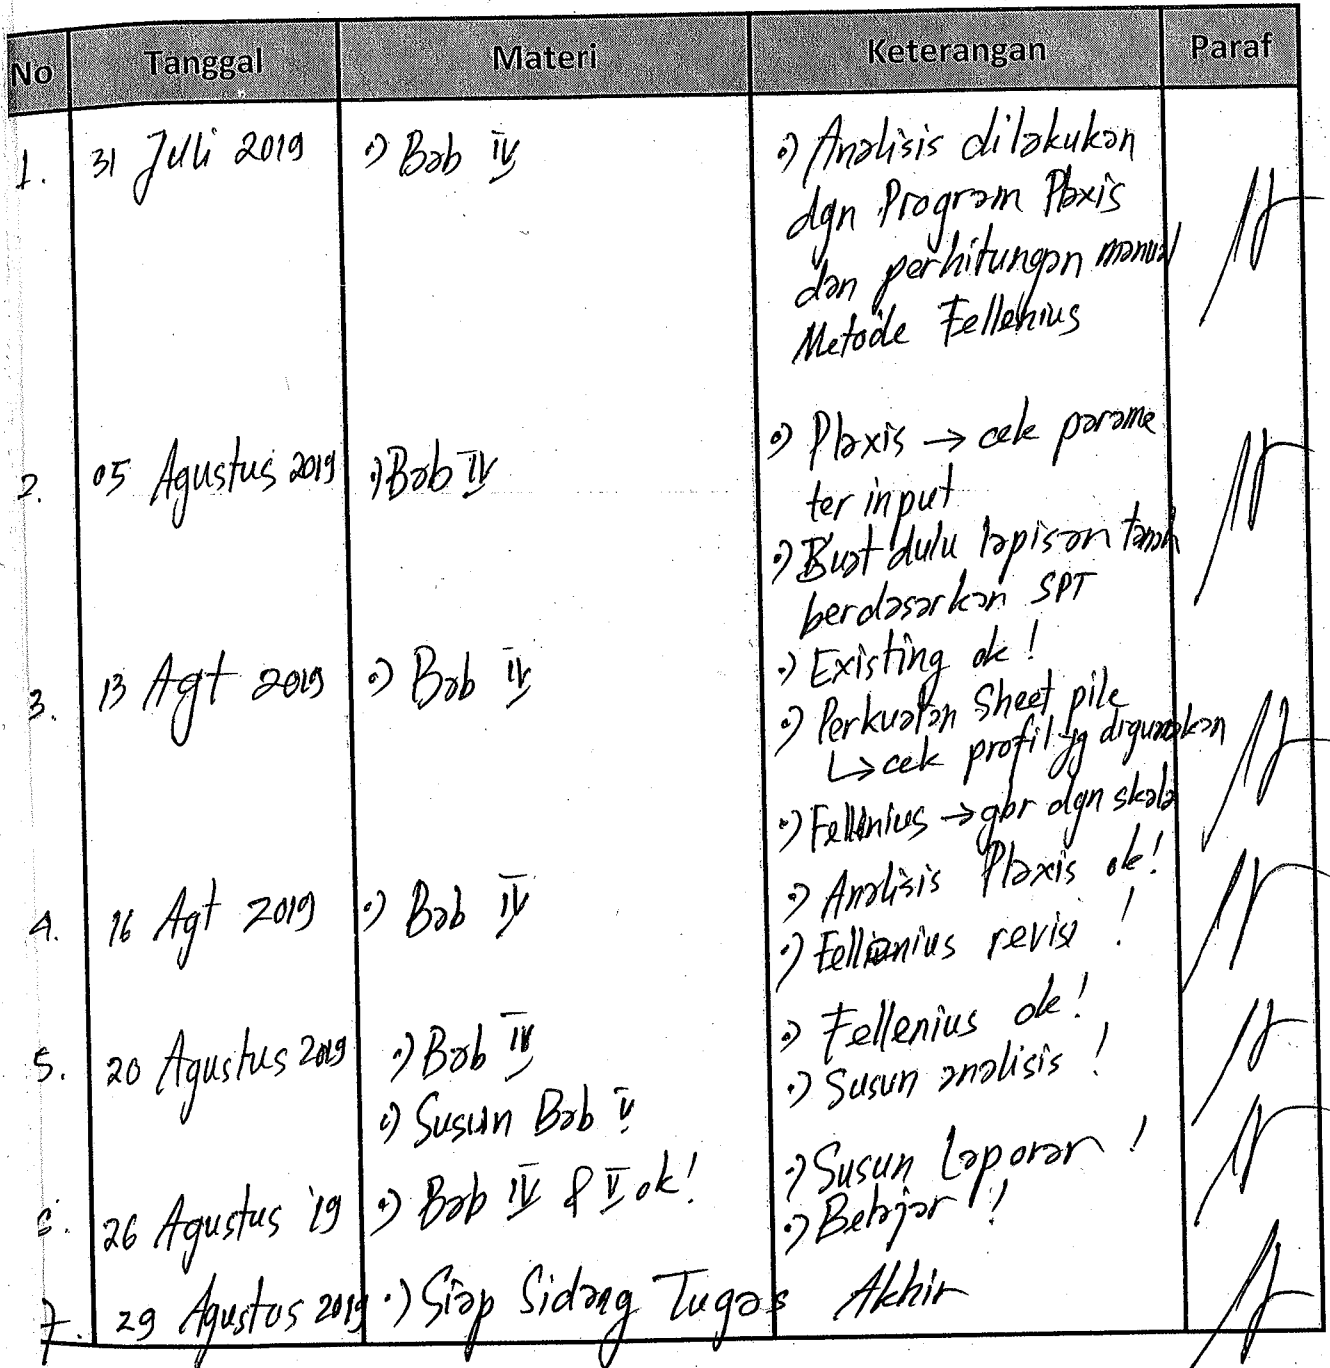 No Tanggal Materi Keterangan Paraf
1. 31 Juli 2019 •) Bab IV •) Analisis dilakukan
dgn Program Plaxis
dan perhitungan manual
Metode Fellenius
2. 05 Agustus 2019 •) Bab IV •) Plaxis → cek parame
ter input
•) Buat dulu lapisan tanah
berdasarkan SPT
3. 13 Agt 2019 •) Bab IV •) Existing ok!
•) Perkuatan Sheet pile
↳ cek profil yg digunakan
•) Fellenius → gbr dgn skala
4. 16 Agt 2019 •) Bab IV •) Analisis Plaxis ok!
•) Fellenius revisi !
5. 20 Agustus 2019 •) Bab IV •) Fellenius ok!
•) Susun Bab V •) Susun analisis !
6. 26 Agustus '19 •) Bab IV & V ok! •) Susun Laporan !
•) Belajar !!
7. 29 Agustus 2019 •) Siap Sidang Tugas Akhir